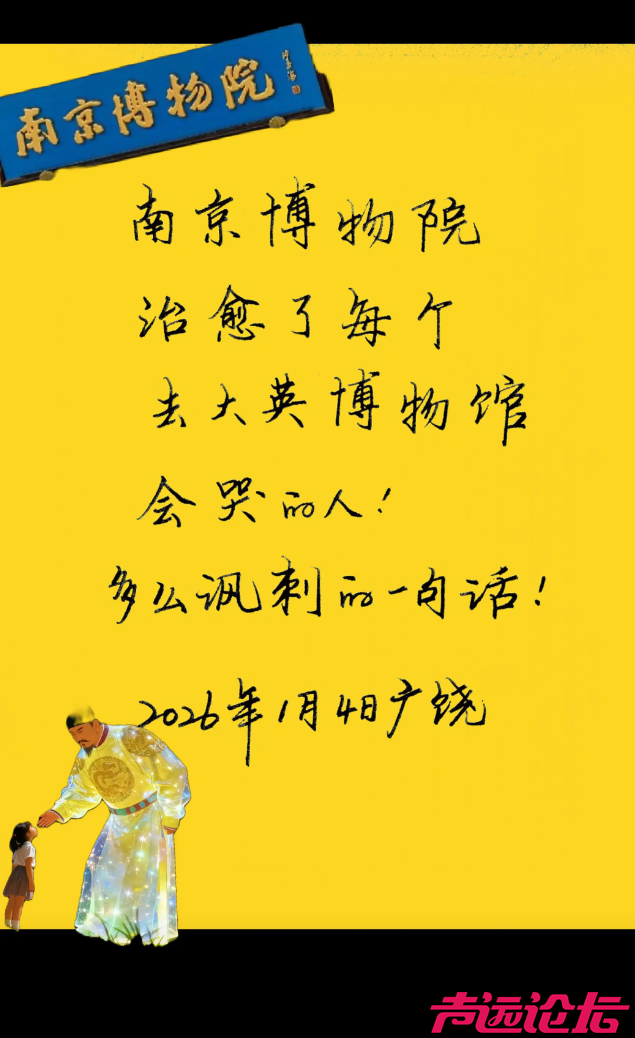 南京博物院
南京博物院
治愈了每个
去大英博物馆
会哭的人!
多么讽刺的一句话!
2026年1月4日广饶
声远论坛